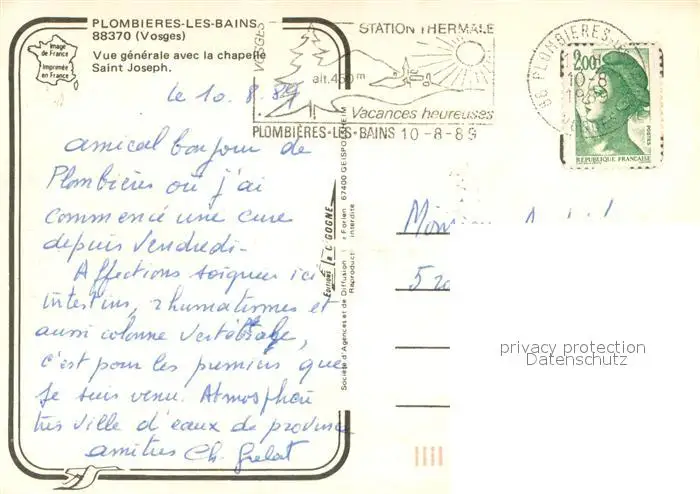 PLOMBIERES-LES-BAINS
88370 (Vosges)
Vue générale avec la chapelle
Saint Joseph.
Image
de France
Imprimée
en France
le 10.8.89
amical bonjour de
Plombières où j'ai
commencé une cure
depuis Vendredi-
Affections soignées ici
intestins, rhumatismes et
aussi colonne Vertébrale,
c'est pour les premiers que
je suis venu. Atmosphère
très ville d'eaux de province
amitiés Ch.
VOSGES
STATION THERMALE
alt. 450 m
Vacances heureuses
PLOMBIÈRES-LES-BAINS 10-8-89
88 PLOMBIERES
10-8
2,00
POSTES
REPUBLIQUE FRANÇAISE
Editions la CIGOGNE
67400 GEISPOLSHEIM
Société d'Agences et de Diffusion
Reproduct interdite
privacy protection
Datenschutz